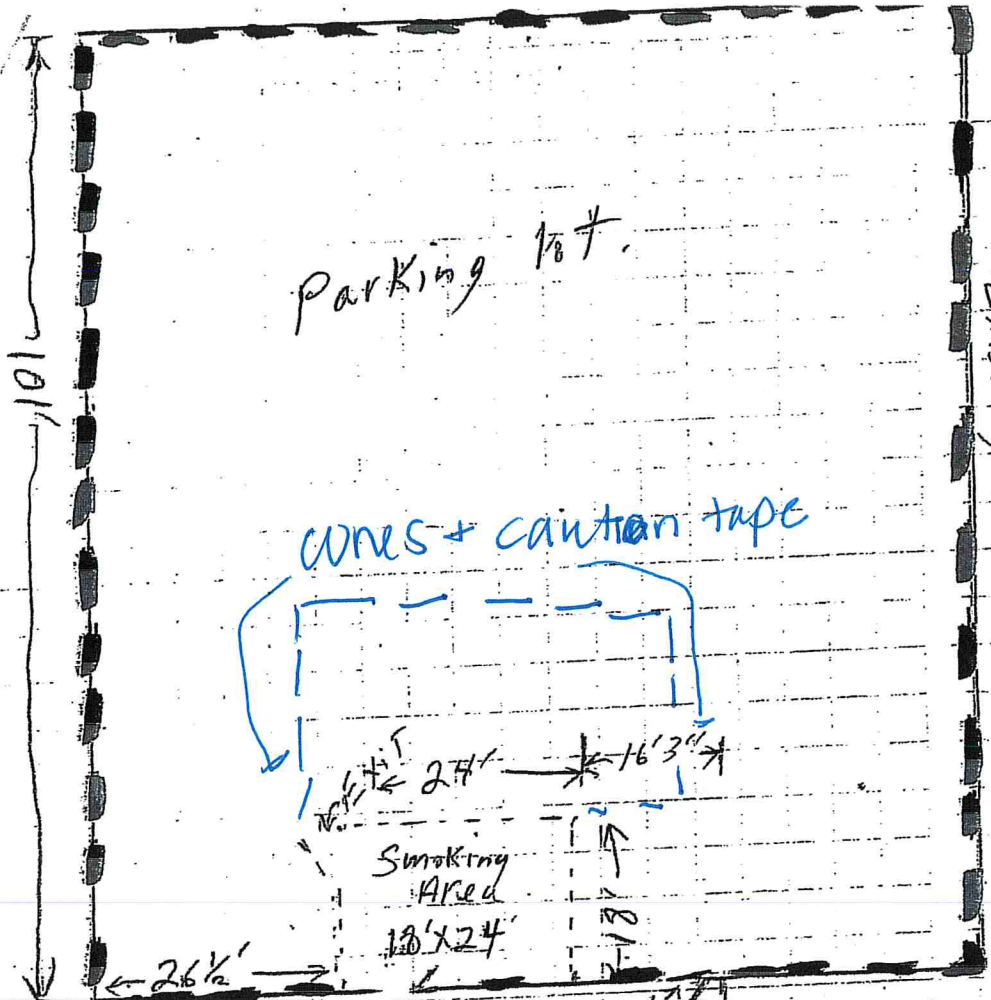 Parking lot.
101'
cones + caution tape
24'
16'3"
Smoking
Area
18'x24'
18'
26½'